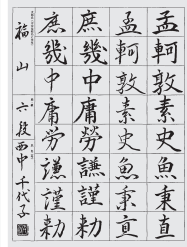 孟軻敦素史魚秉直
孟軻敦素史魚秉直
庶幾中庸勞謙謹勅
庶幾中庸労謙謹勅
福山 六段 西中千代子